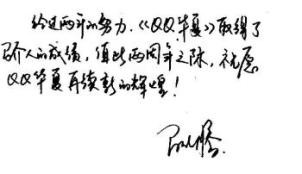 经过两年的努力，《QQ华夏》取得了
令人的成绩，值此两周年之际，祝愿
QQ华夏再续新的辉煌！
马化腾